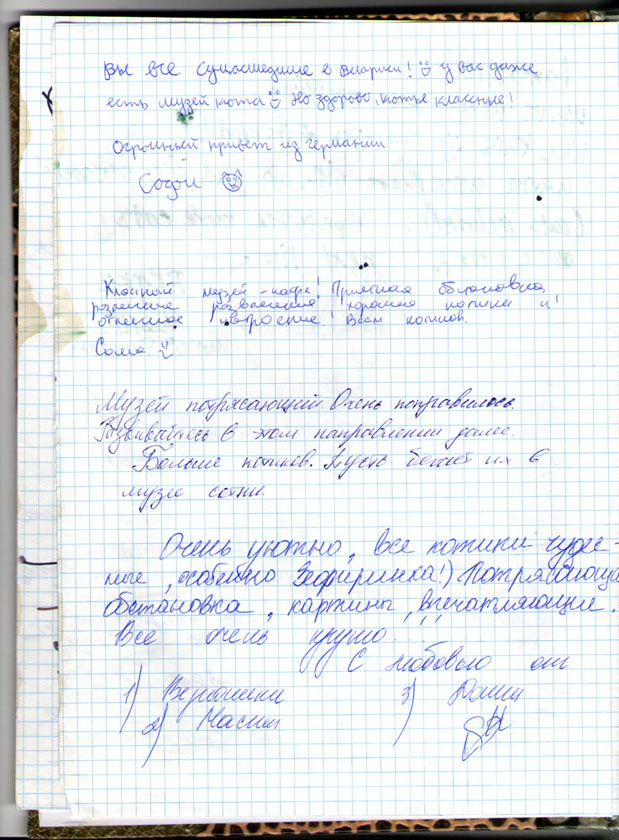 Вы все сумасшедшие в Беларуси! у вас даже
есть музей кота Но здорово, котье классные!
Огромный привет из германии
Софи
Классный музей-кафе! Приятная обстановка,
различные развлечения хорошие котики и!
отличное настроение! Всем котиков.
Соша
Музей потрясающий. Очень понравилось.
Развивайтесь в этом направлении далее.
Больше котиков. Пусть бегает их в
музее сотни.
Очень уютно, все котики чудес-
ные, особенно Зефиринка!) Потрясающая
обстановка, картины, впечатляющие.
Все очень круто!!!
С любовью от
1) Вероники 3) Даши
2) Насти